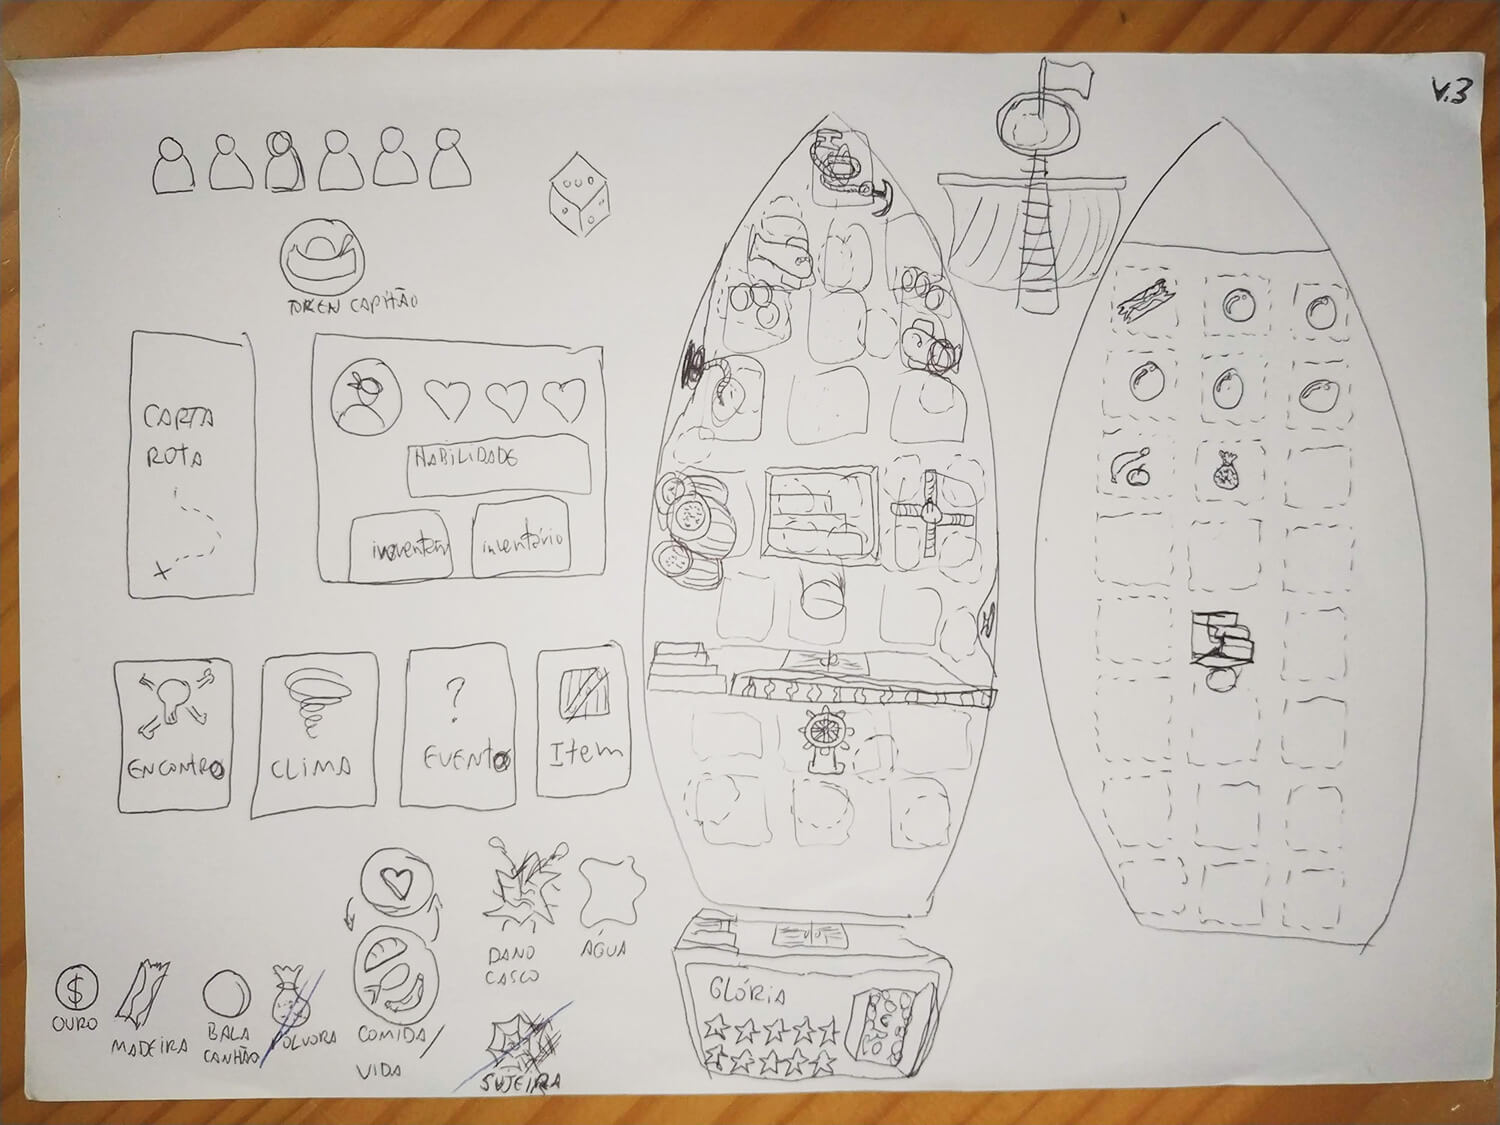 V.3
TOKEN CAPITÃO
CARTA
ROTA
HABILIDADE
inventário
inventário
ENCONTRO
CLIMA
?
EVENTO
Item
DANO
CASCO
ÁGUA
$
OURO
MADEIRA
BALA
CANHÃO
PÓLVORA
COMIDA/
VIDA
SUJEIRA
GLÓRIA